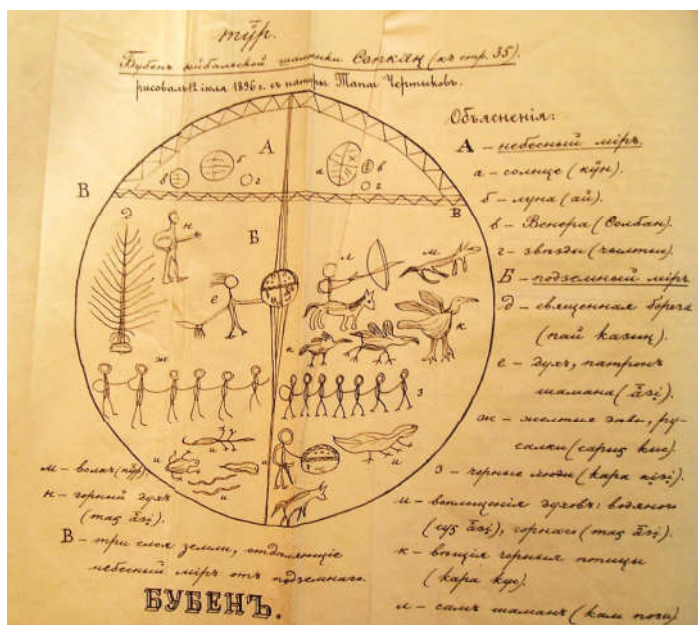 тӱр.
Бубенъ койбальской шаманки Сопкан (къ стр. 35).
рисовалъ 12 iюля 1896 г. съ натуры Чертиковъ.
Объясненiя:
А – небесный мiръ.
а – солнце (кӱн).
б – луна (ай).
в – Венера (Солбан).
г – звѣзды (чылтыс).
Б – подземный мiръ.
д – священная береза
(пай казың).
е – духъ, патронъ
шамана (ӓзi).
ж – желтыя дѣвы, ру-
салки (сарыҕ кыс).
з – черные люди (кара кiзi).
и – воплощенiя духовъ: водяного
(суҕ ӓзi), горнаго (таҕ ӓзi).
к – вѣщiя черныя птицы
(кара кус).
л – самъ шаманъ (кам пози)
м – волкъ (пӱр).
н – горный духъ
(таҕ ӓзi).
В – три слоя земли, отдѣляющiе
небесный мiръ отъ подземнаго.
БУБЕНЪ.
А
в
б
г
а
в
г
В
В
д
н
Б
е
л
м
к
к
ж
з
и
и
и
и